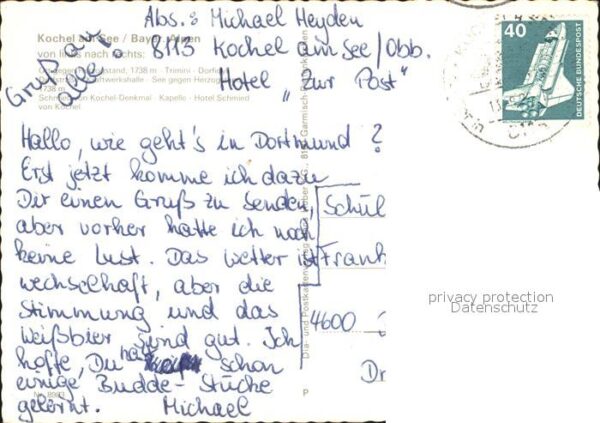 Abs.: Michael Heyden
8113 Kochel am See/Obb.
Hotel „Zur Post"
Gruß an
alle!
Kochel am See / Bayer. Alpen
von links nach rechts:
Schmied von Kochel-Denkmal · Kapelle · Hotel Schmied
von Kochel
40
DEUTSCHE BUNDESPOST
Hallo, wie geht's in Dortmund?
Erst jetzt komme ich dazu
Dir einen Gruß zu senden,
aber vorher hatte ich noch
keine Lust. Das Wetter ist
wechselhaft, aber die
Stimmung und das
Weißbier sind gut. Ich
hoffe, Du hast schon
einige Budde-Stücke
gelernt. Michael
Schül
Frank
4600
D
privacy protection
Datenschutz
P